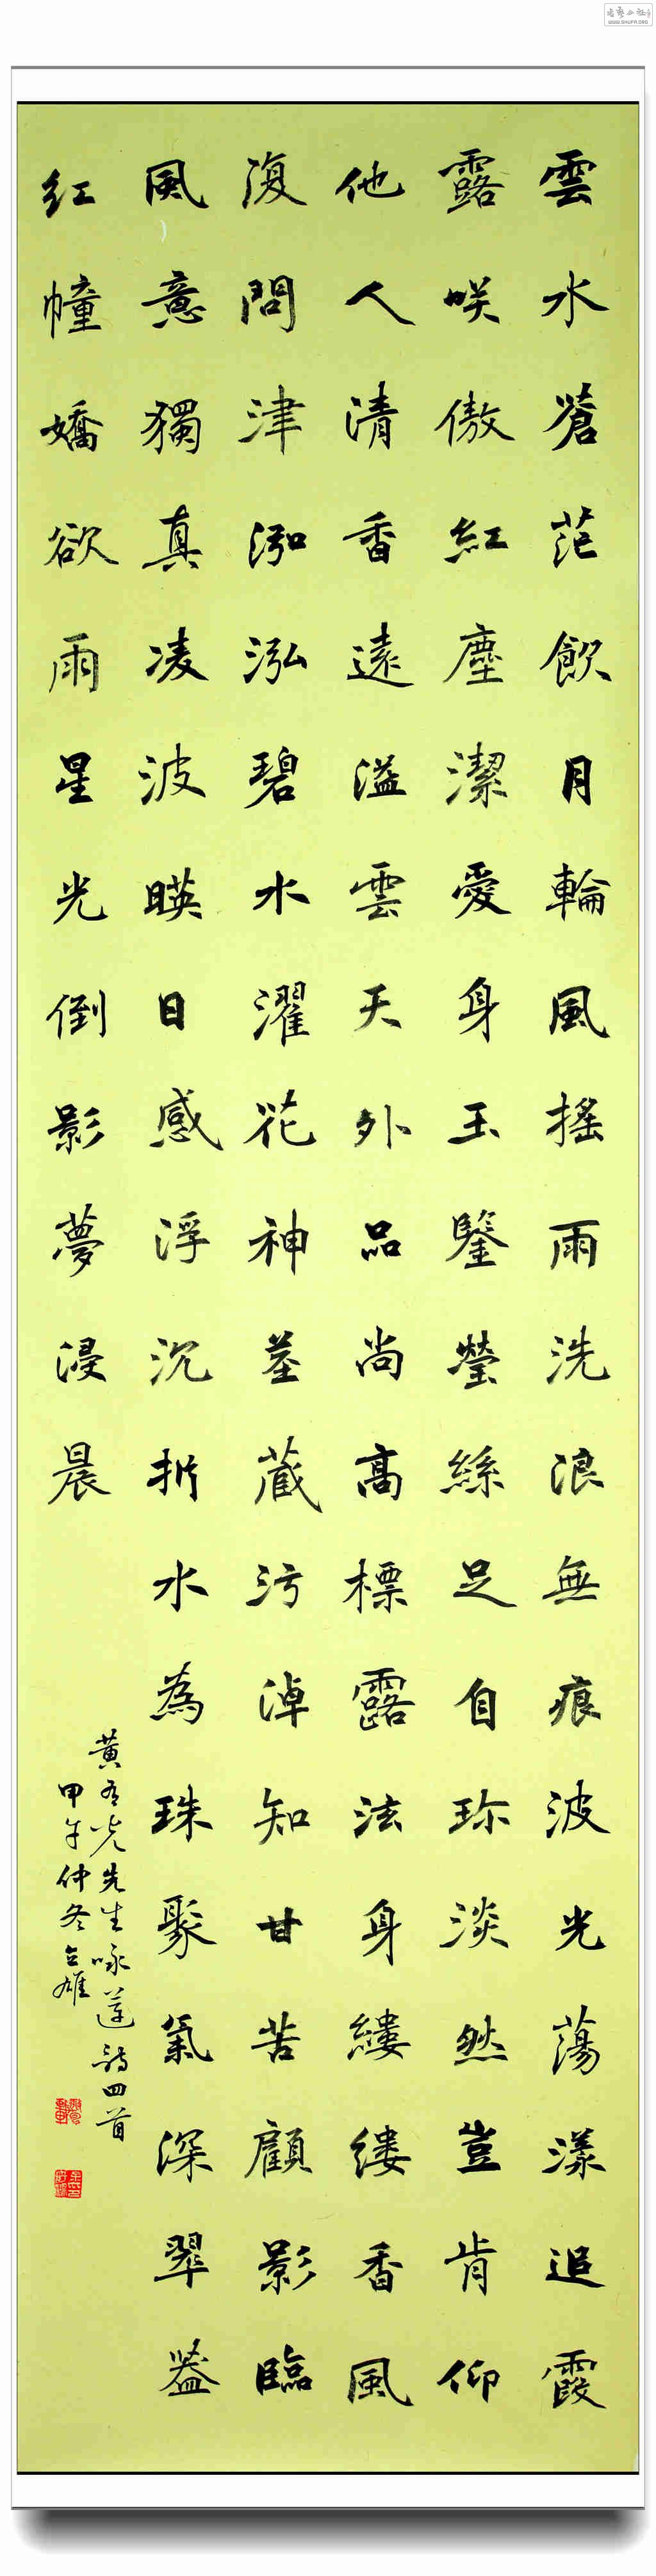 雲水蒼茫飲月輪風搖雨洗浪無痕波光蕩漾追霞
露咲傲紅塵潔愛身玉鑒瑩絲足自珎淡然豈肯仰
他人清香遠溢雲天外品尚高標露法身縷縷香風
復問津泓泓碧水濯花神莖藏污淖知甘苦顧影臨
風意獨真凌波暎日感浮沉折水為珠聚氣深翠蓋
紅幢嬌欲雨星光倒影夢浸晨
黄有光先生咏蓮詩四首
甲午仲冬立雄
WWW.SHUFA.ORG